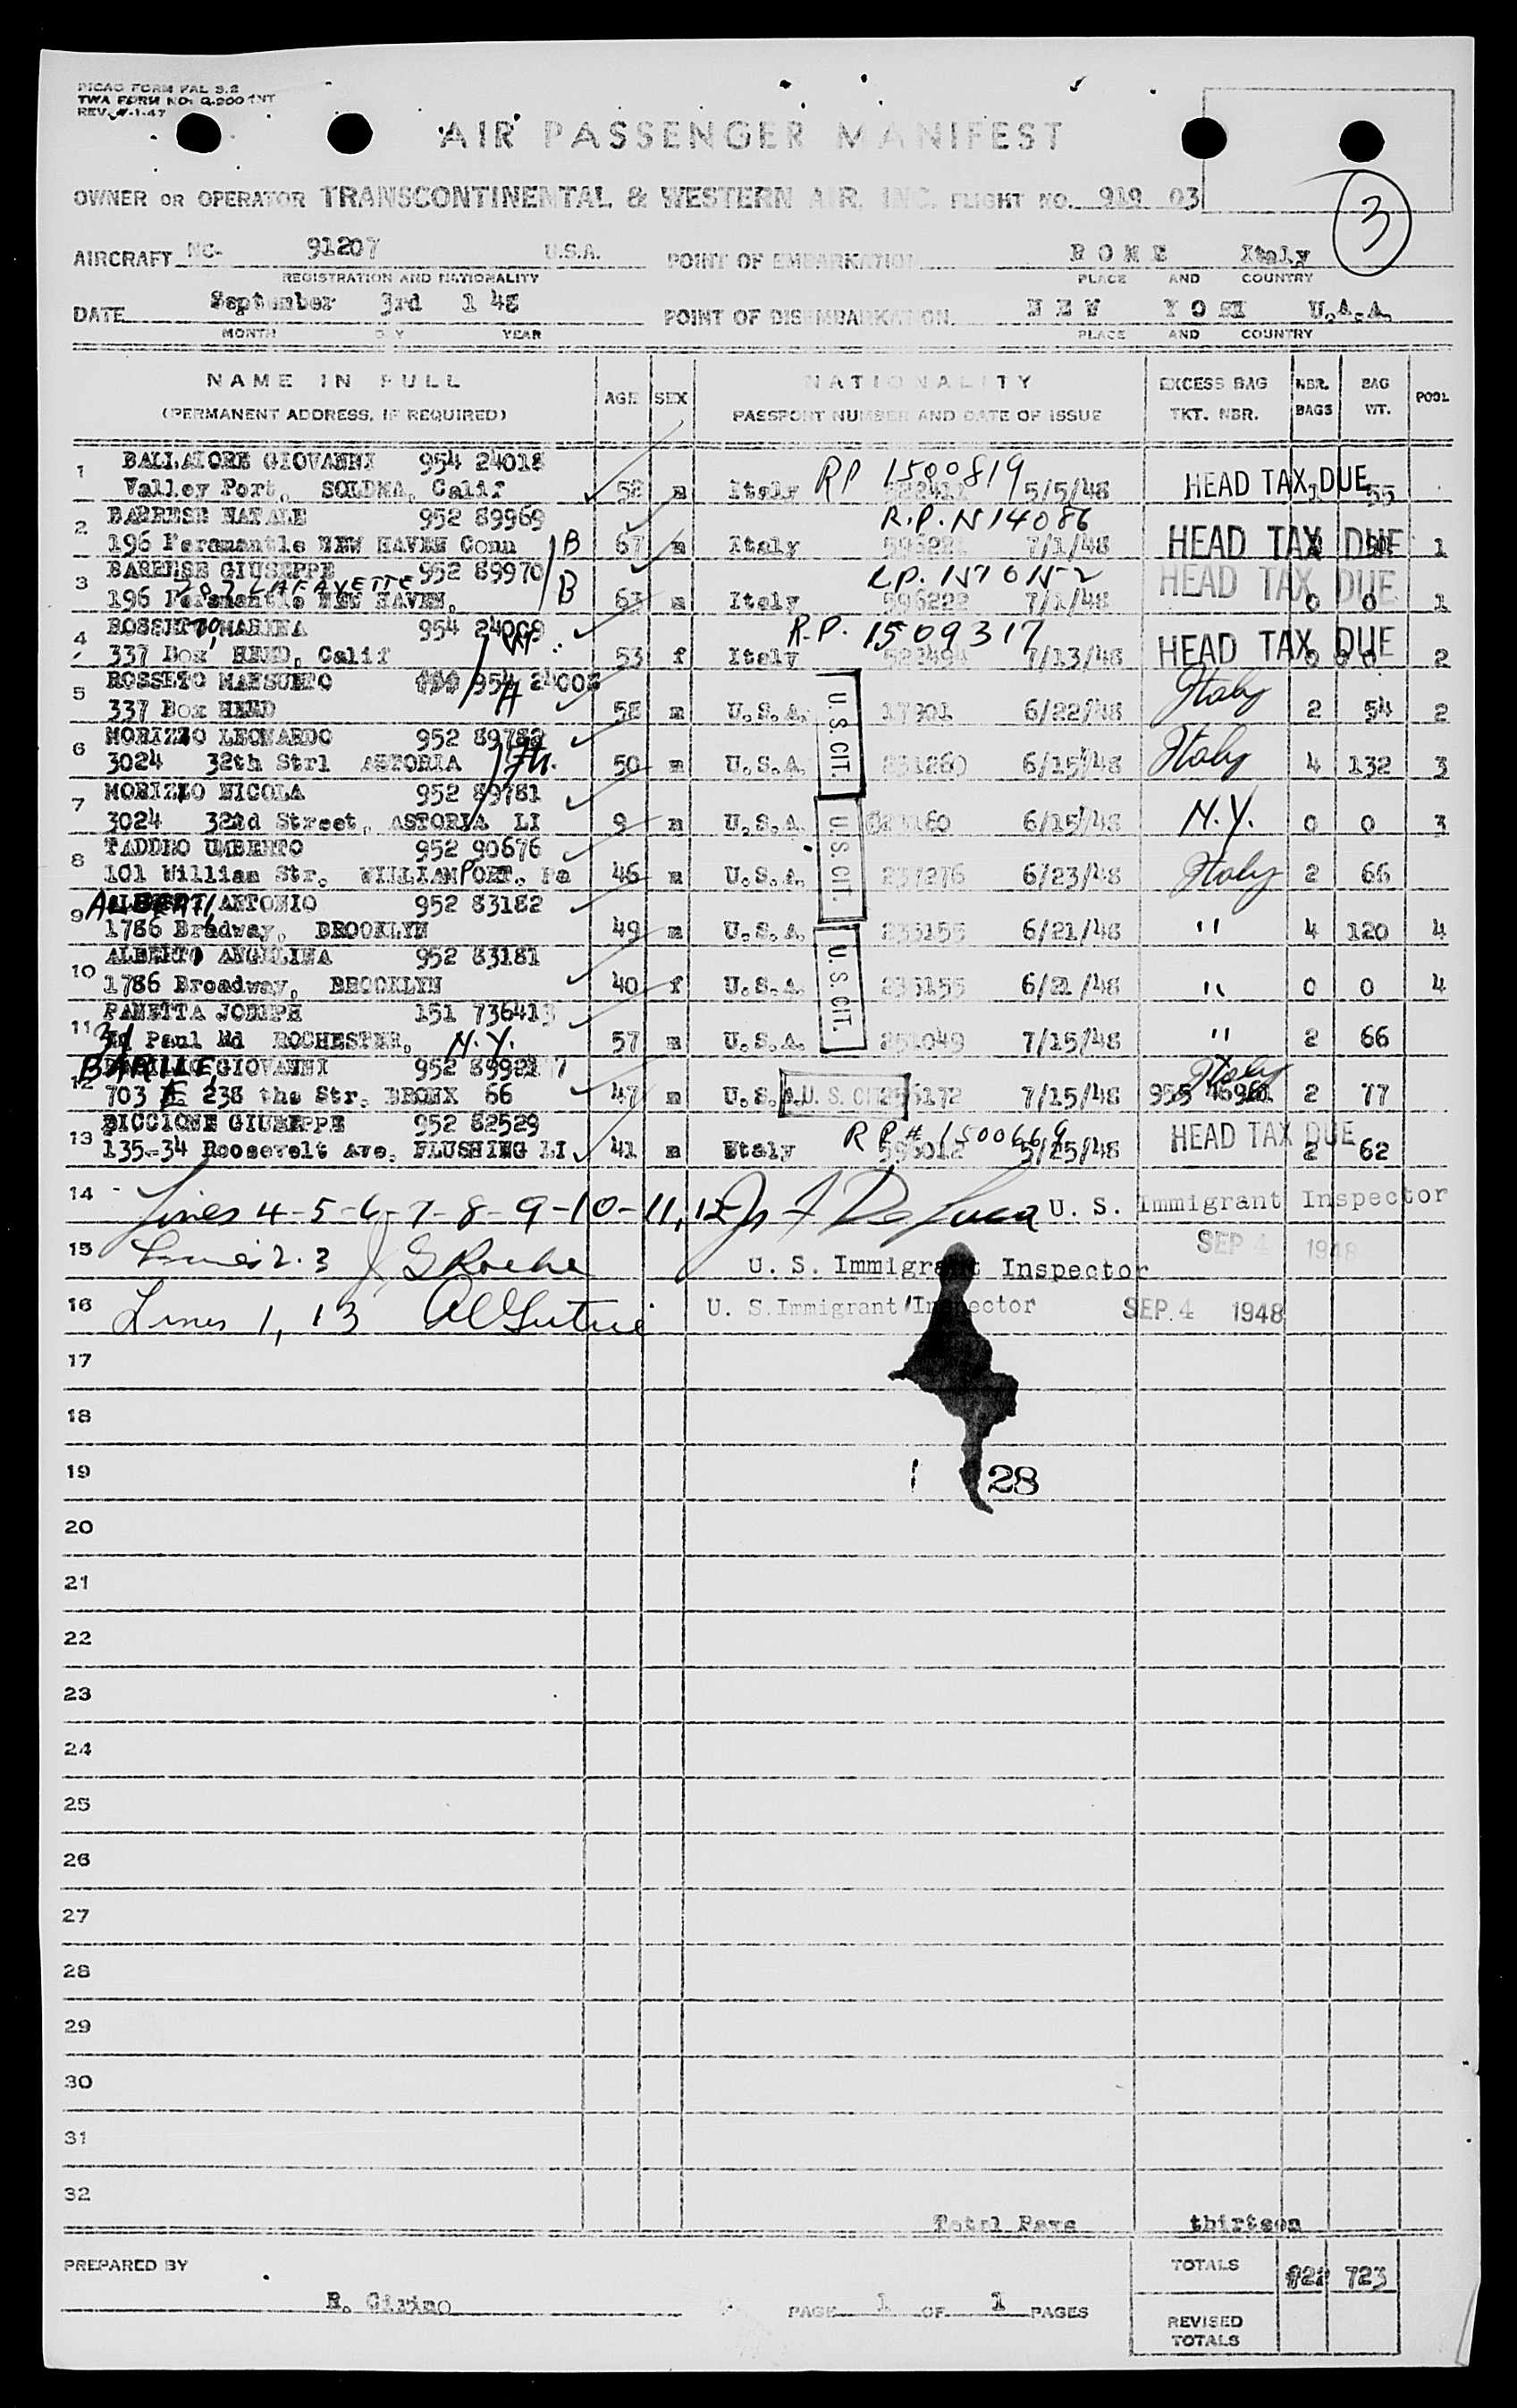 PICAO FORM FAL 3.2
TWA FORM NO. G-200 INT
REV. 4-1-47
AIR PASSENGER MANIFEST
OWNER OR OPERATOR TRANSCONTINENTAL & WESTERN AIR, INC. FLIGHT NO. 919 03
3
AIRCRAFT NC- 91207 U.S.A. POINT OF EMBARKATION R O M E Italy
REGISTRATION AND NATIONALITY PLACE AND COUNTRY
DATE September 3rd 1 48 POINT OF DISEMBARKATION N E W Y O RK U.A.A.
MONTH DAY YEAR PLACE AND COUNTRY
NAME IN FULL AGE SEX NATIONALITY EXCESS BAG NBR. BAG POOL
(PERMANENT ADDRESS, IF REQUIRED) PASSPORT NUMBER AND DATE OF ISSUE TKT. NBR. BAGS WT.
1 BALLATORE GIOVANNI 954 24018 RP 1500819
Valley Port, Calif 52 m Italy 5/5/48 HEAD TAX DUE 55
2 BARRESE NATALE 952 89969 R.P.
196 NEW HAVEN Conn B 67 m Italy 7/1/48 HEAD TAX DUE 1
3 BARRESE GIUSEPPE 952 89970 LAFAYETTE
196 NEW HAVEN, B 63 m Italy 596222 7/1/48 HEAD TAX DUE 0 0 1
4 ROSSETTO, MARINA 954 24009 R.P. 1509317
337 Box REND, Calif 53 f Italy 7/13/48 HEAD TAX DUE 0 0 2
5 ROSSETO MANSUETO 954 24008
337 Box 58 m U.S.A. U.S. CIT. 17901 6/22/48 Italy 2 54 2
6 MORIZZO LEONARDO 952 89782
3024 32th Strl ASTORIA 50 m U.S.A. 231260 6/15/48 Italy 4 132 3
7 MORIZZO NICOLA 952 89781
3024 32nd Street, ASTORIA LI 9 m U.S.A. U.S. CIT. 6/15/48 N.Y. 0 0 3
8 TADDEO UMBERTO 952 90676
101 William Str. WILLIAMPORT. Pa 46 m U.S.A. 237276 6/23/48 Italy 2 66
9 ALBERTI, ANTONIO 952 83182
1786 Bradway, BROOKLYN 49 m U.S.A. 235155 6/21/48 " 4 120 4
10 ALBERTO ANGELINA 952 83181
1786 Broadway, BROOKLYN 40 f U.S.A. U.S. CIT. 235155 6/21/48 " 0 0 4
11 PANETTA JOSEPH 151 736413
31 Paul Rd ROCHESTER, N.Y. 57 m U.S.A. 251049 7/15/48 " 2 66
12 BARILLE, GIOVANNI 952
703 E 238 the Str. BRONX 66 47 m U.S.A. U.S. CIT. 256172 7/15/48 Italy 955 2 77
13 PICCIONE GIUSEPPE 952 82529 RP#
135-34 Roosevelt Ave. FLUSHING LI 41 m Italy 5/25/48 HEAD TAX DUE 2 62
14 Lines 4-5-6-7-8-9-10-11, 12 De Luca U. S. Immigrant Inspector
SEP 4 1948
15 Lines 2.3 U. S. Immigrant Inspector
16 Lines 1, 13 U. S. Immigrant Inspector SEP. 4 1948
17
18
19 28
20
21
22
23
24
25
26
27
28
29
30
31
32
Total Paxs thirteen
PREPARED BY TOTALS 22 723
R. Cirino PAGE 1 OF 1 PAGES
REVISED
TOTALS